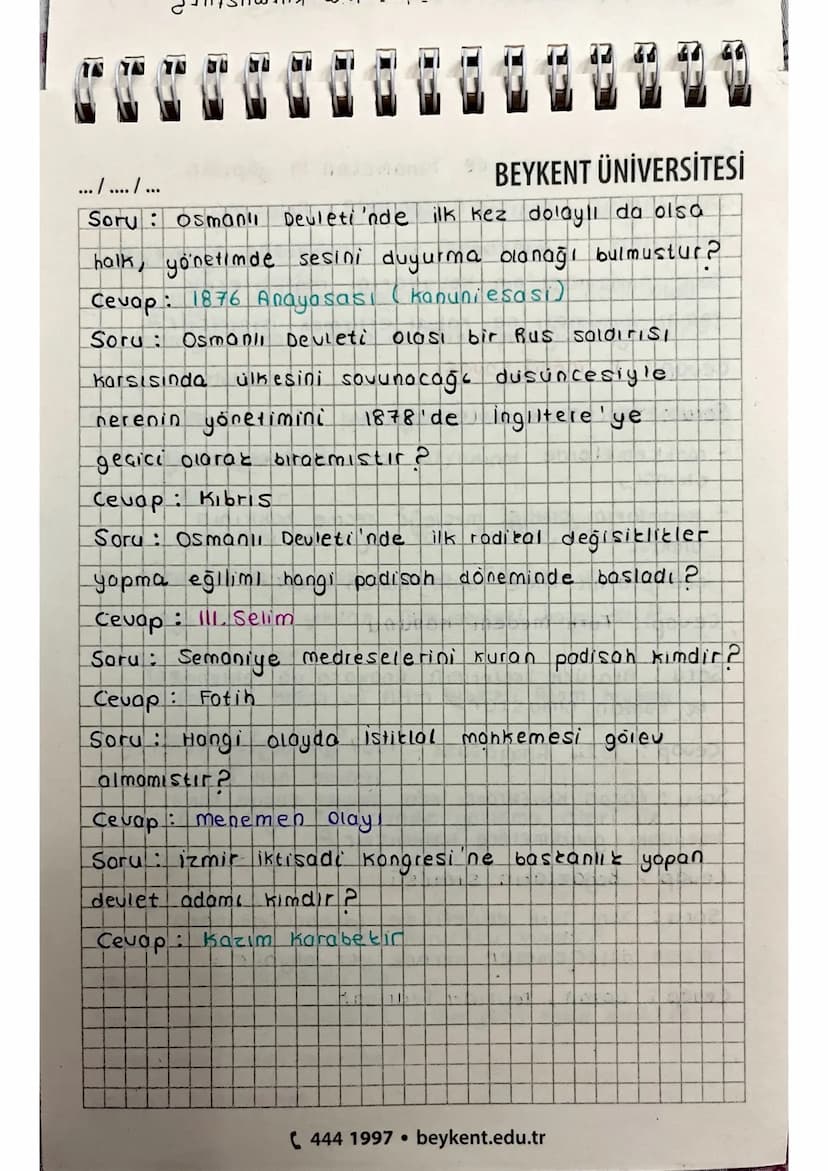 ... / .... / ...
BEYKENT ÜNİVERSİTESİ
Soru : Osmanlı Devleti'nde ilk kez dolaylı da olsa
halk, yönetimde sesini duyurma olanağı bulmustur?
Cevap : 1876 Anayasası (Kanuniesasi)
Soru : Osmanlı Devleti olası bir Rus saldırısı
karsısında ülkesini savunacağı düsüncesiyle
nerenin yönetimini 1878'de ingiltere'ye
gecici olarak bırakmıstır?
Cevap : Kıbrıs
Soru : Osmanlı Devleti'nde ilk radikal değisiklikler
yapma eğilimi hangi padisah döneminde basladı?
Cevap : III. Selim
Soru : Semaniye medreselerini kuran padisah kimdir?
Cevap : Fatih
Soru : Hangi olayda istiklal mahkemesi görev
almamıstır?
Cevap : menemen olayı
Soru : izmir iktisadi Kongresi'ne baskanlık yapan
devlet adamı kimdir?
Cevap : Kazım Karabekir
444 1997 • beykent.edu.tr